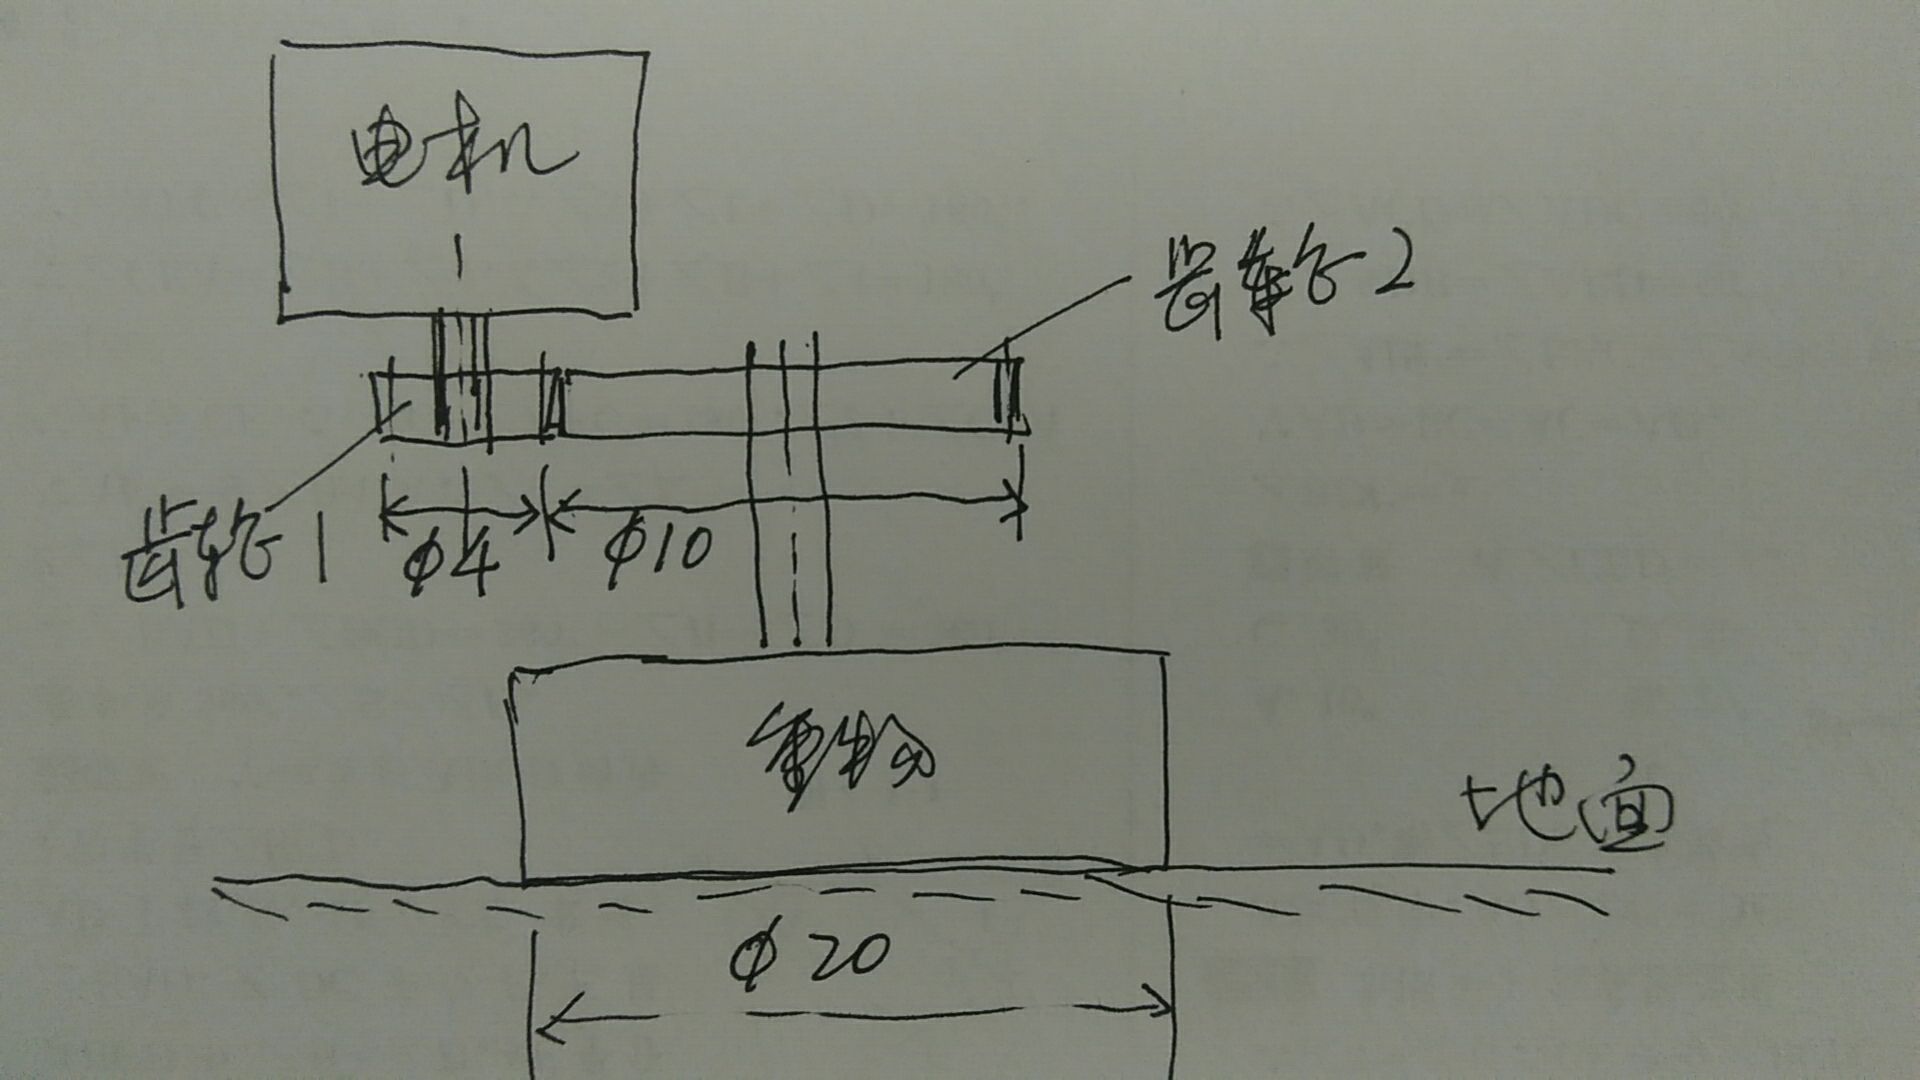 电机
齿轮2
齿轮1
φ4
φ10
重物
地面
φ20